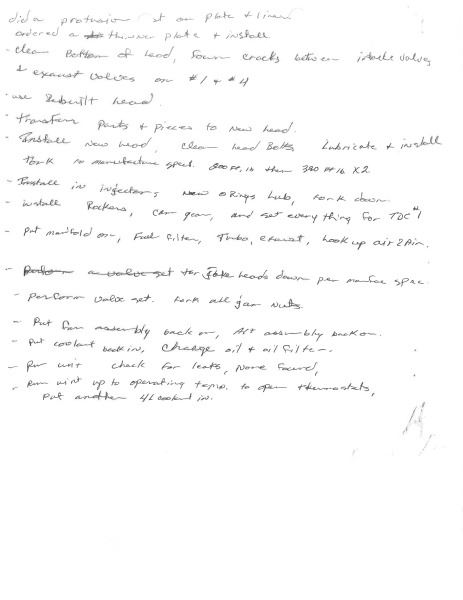 did a protrusion st on plate + liner
ordered a thinner plate + install
- clean Bottom of head, found cracks between intake valves
+ exhaust valves on #1 + #4
- use Rebuilt head.
- transfer Parts + pieces to New head.
- Install New head, clean head Bolts Lubricate + install
Tork to manufacture spect. 200 Ft, lb then 330 Ft lb X2
- Install in injectors, New O Rings Lub, tork down
- install Rockers, Cam gear, and set everything for TDC #1
- Put manifold on, Fuel filter, Turbo, exhaust, hook up air 2 Pin.
- a valve set heads down per manfac spec.
- Perform valve set. tork all jam nuts.
- Put fan assembly back on, Alt assembly back on.
- Put coolant back in, Change oil + oil filter.
- Run unit check for leaks, None found,
- Run unit up to operating temp. to open thermostats,
put another 4L coolant in.